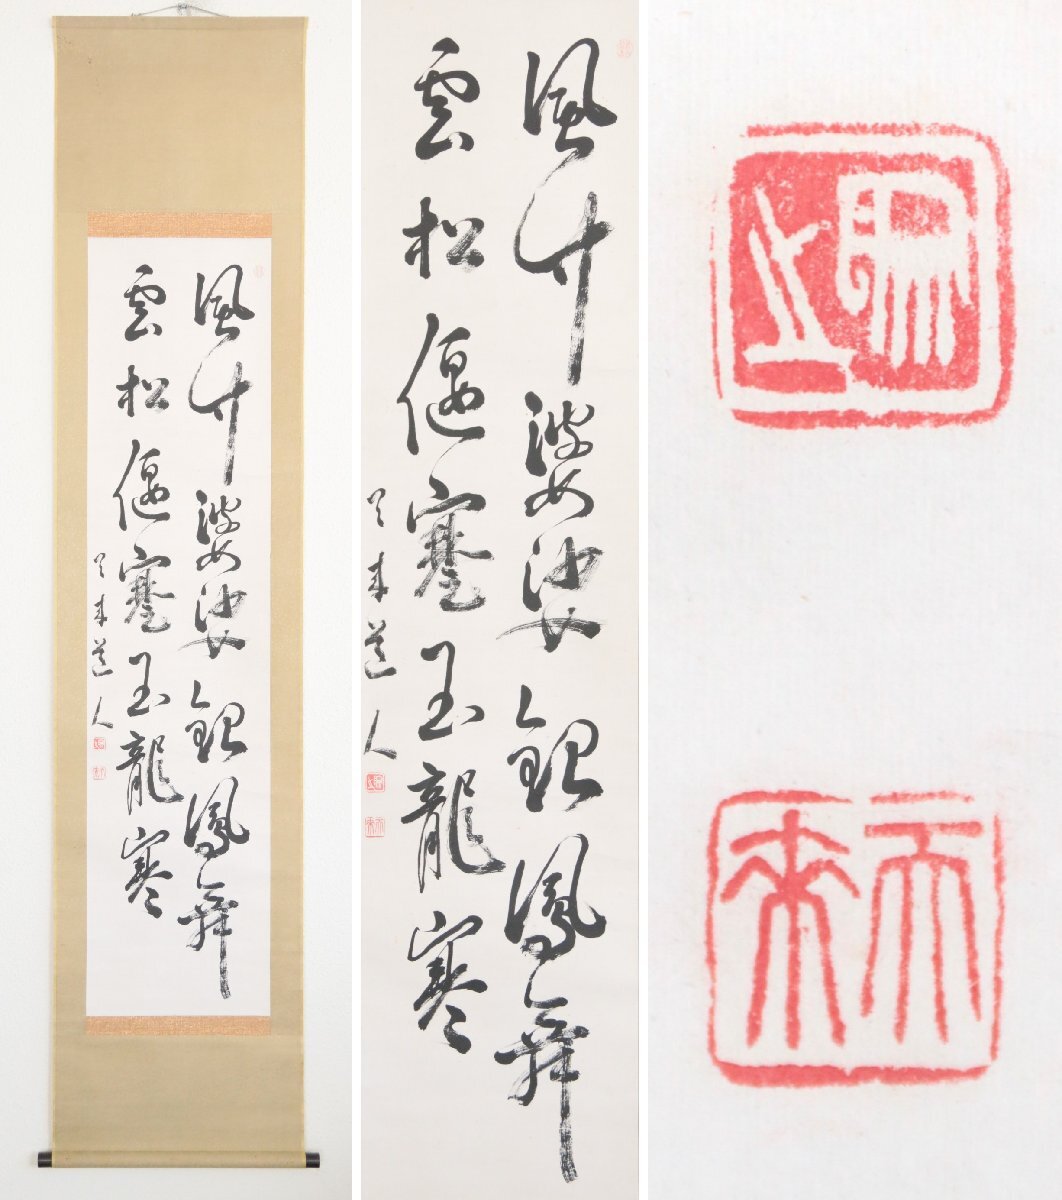 風竹婆娑銀鳳舞
雲松偃蹇玉龍寒
天来道人
風竹婆娑銀鳳舞
雲松偃蹇玉龍寒
天来道人
天來